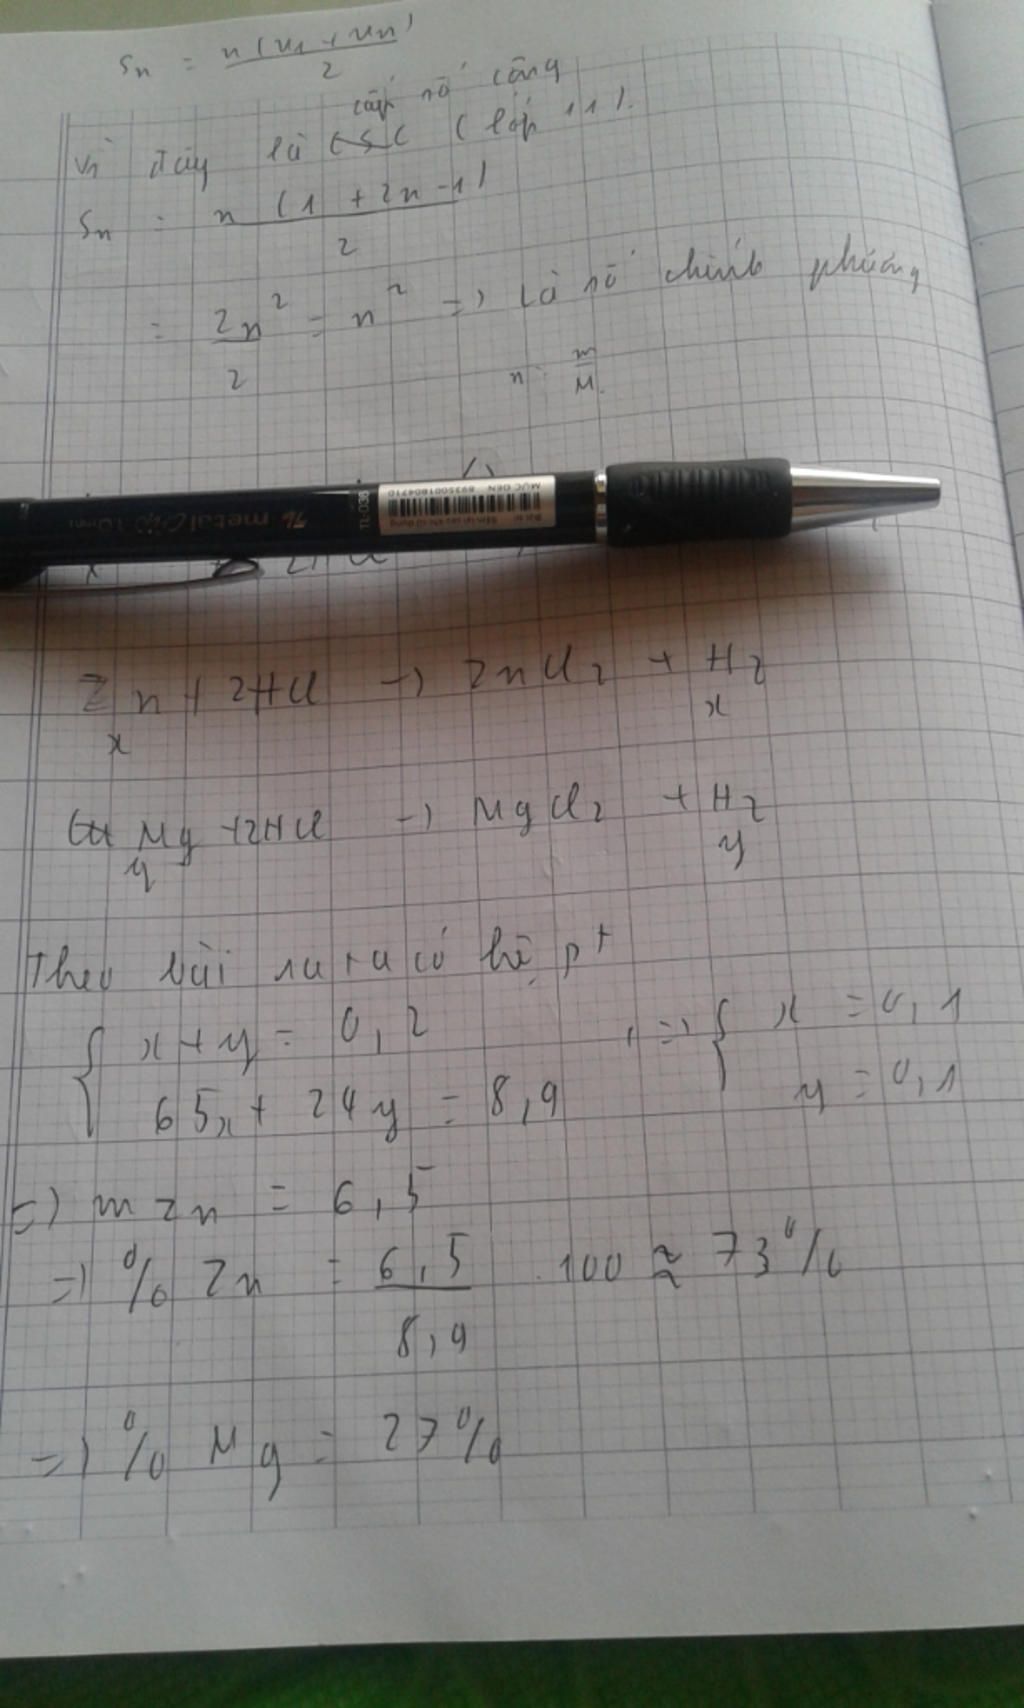 Sn = n(u1 + un)
2
cấp số cộng
Vì đây là CSC (lớp 11).
Sn = n (1 + 2n -1)
2
= 2n² = n² => là số chính phương
2
n = m
M
TL metal 1.0mm
TL-036
MỰC ĐEN 8935001804710
2HCl
Zn + 2HCl -> ZnCl2 + H2
x x
Mg +2HCl -> MgCl2 + H2
y y
Theo bài ra ta có hệ pt
x + y = 0,2 => x = 0,1
65x + 24y = 8,9 y = 0,1
=> mZn = 6,5
=> % Zn = 6,5 . 100 ≈ 73%
8,9
=> % Mg = 27%